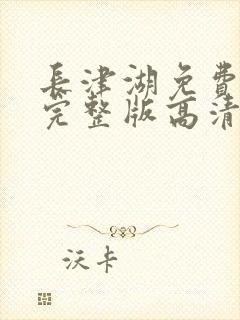 長津湖免費
完整版高清
沃卡